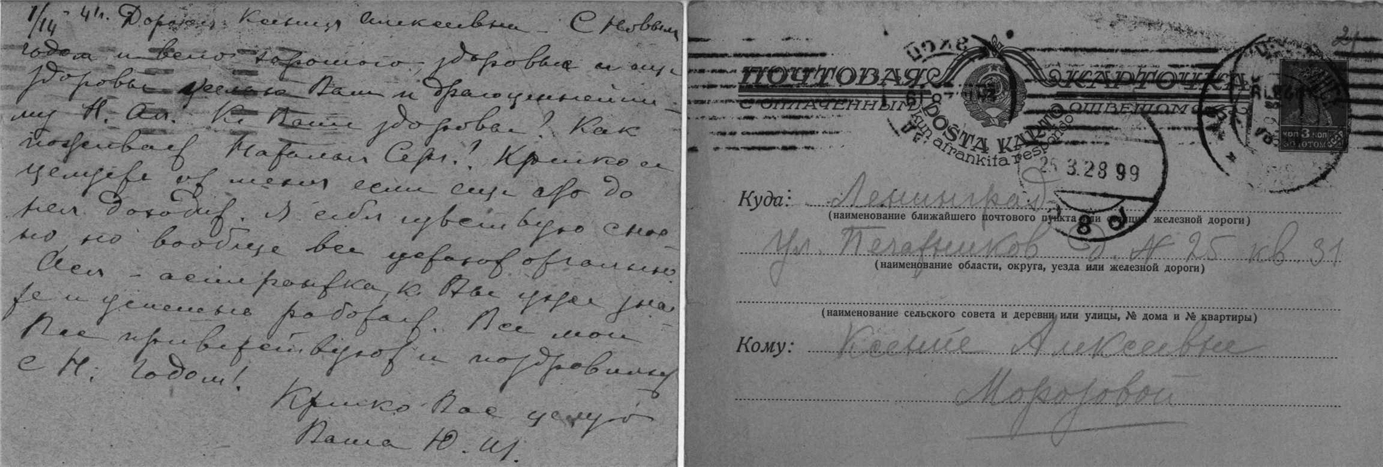 1/14 - 41. Дорогая Ксения Алексеевна - С Новым
годом и всего хорошого, здоровья и еще
здоровья желаю Вам и драгоценнейше-
му Н. Ал. К. Ваше здоровье? Как
поживает Наталья Серг.? Крепко ее
целуйте от меня если еще это до
нея доходит. Я себя чувствую
но, но вообще все
Ася - аспирантка, к. Вы уже зна-
ете и успешно работает. Все мои
Вас приветствуют и поздравляют
с Н. Годом!
Крепко Вас целую
Ваша Ю. Ш.
ПОЧТОВАЯ КАРТОЧКА
С ОПЛАЧЕННЫМ ОТВЕТОМ
POŜTA KARTO
kun afrankita respondo
КОП 3 КОП
ЗОЛОТОМ
25 3.28 99
8
Куда: Ленинград
(наименование ближайшего почтового пункта или станции железной дороги)
ул. Печатников д. N 25 кв 31
(наименование области, округа, уезда или железной дороги)
(наименование сельского совета и деревни или улицы, № дома и № квартиры)
Кому: Ксении Алексеевне
Морозовой